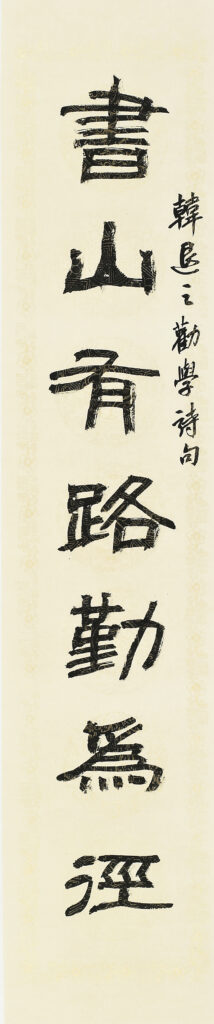 韓退之勸學詩句
書山有路勤為徑